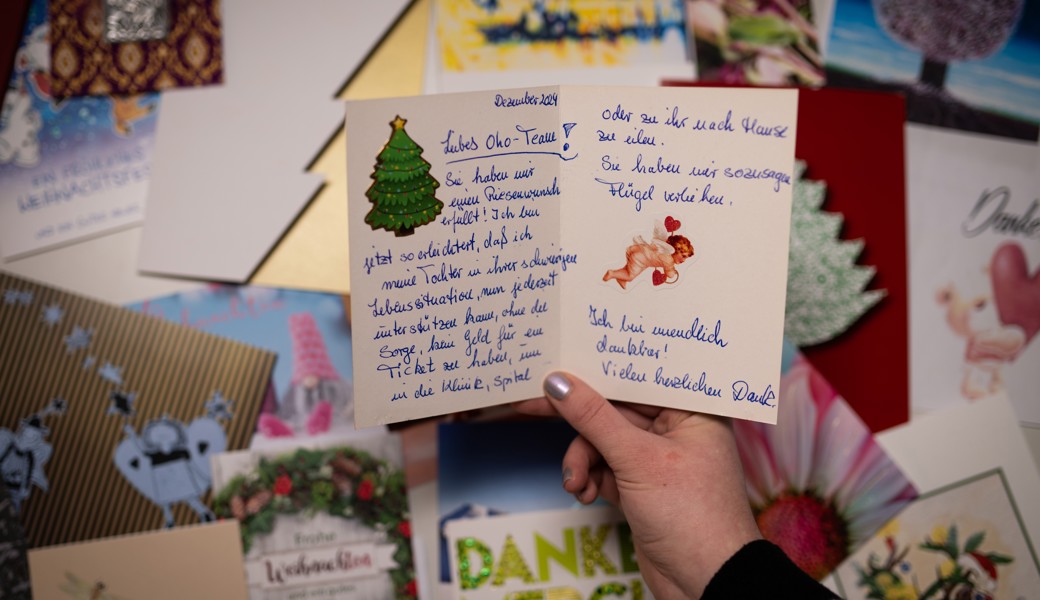 Dezember 2024
Liebes Öko-Team!
Sie haben mir
einen Riesenwunsch
erfüllt! Ich bin
jetzt so erleichtert, daß ich
meine Tochter in ihrer schwierigen
Lebenssituation, nun jederzeit
unterstützen kann, ohne die
Sorge, kein Geld für ein
Ticket zu haben, um
in die Klinik, Spital
oder zu ihr nach Hause
zu eilen.
Sie haben mir sozusagen
Flügel verliehen.
Ich bin unendlich
dankbar!
Vielen herzlichen Dank.
WEIHNACHTSFEST
Danke
Frohe
Weihnachten
DANKE
MERCI